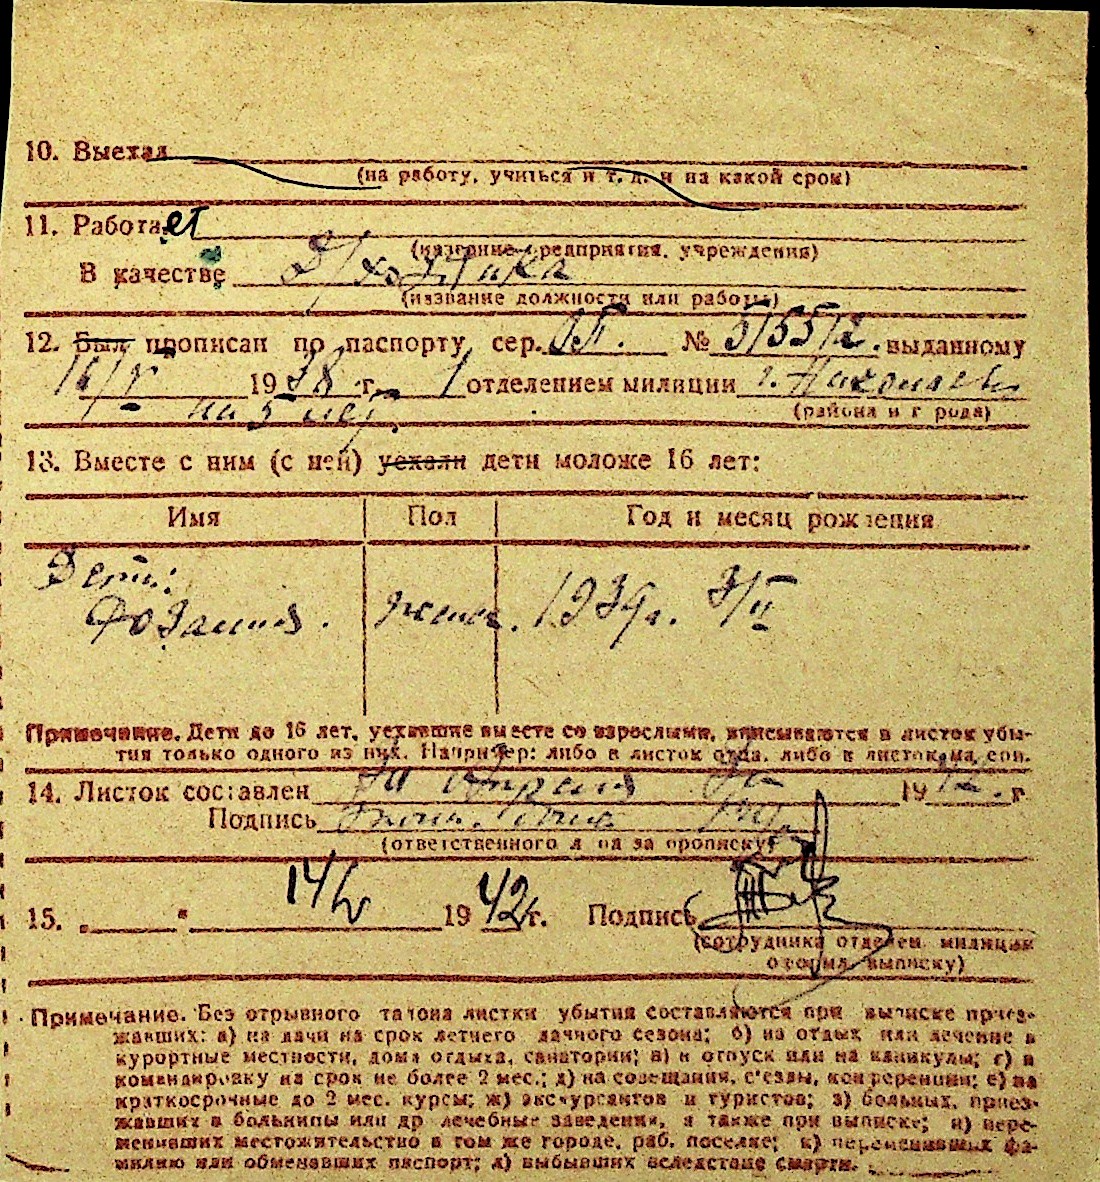 10. Выехал
(на работу, учиться и т. д. и на какой срок)
11. Работает
(название предприятия, учреждения)
В качестве Д/хозяйка
(название должности или работы)
12. Был прописан по паспорту сер. № выданному
16/V 1938 г. 1 отделением милиции г. Николаев
на 5 лет. (района и г рода)
13. Вместе с ним (с ней) уехали дети моложе 16 лет:
Имя Пол Год и месяц рождения
Дети:
женс. 1939г. 3/II
Примечание. Дети до 16 лет, уехавшие вместе со взрослыми, вписываются в листок убы-
тия только одного из них. Например: либо в листок отца, либо в листок ма ери.
14. Листок составлен 1942. г
Подпись
(ответственного л ца за прописку)
15. „ " 14/V 1942 г. Подпись
(сотрудника отделен. милиции
оформл. выписку)
Примечание. Без отрывного талона листки убытия составляются при выписке приез-
жавших: а) на дачи на срок летнего дачного сезона; б) на отдых или лечение в
курортные местности, дома отдыха, санатории; в) в отпуск или на каникулы; г) в
командировку на срок не более 2 мес.; д) на совещания, с'езды, конференции; е) на
краткосрочные до 2 мес. курсы; ж) экскурсантов и туристов; з) больных, приез-
жавших в больницы или др лечебные заведения, а также при выписке; и) пере-
менивших местожительство в том же городе, раб. поселке; к) переменивших фа-
милию или обменявших паспорт; л) выбывших вследствие смерти.